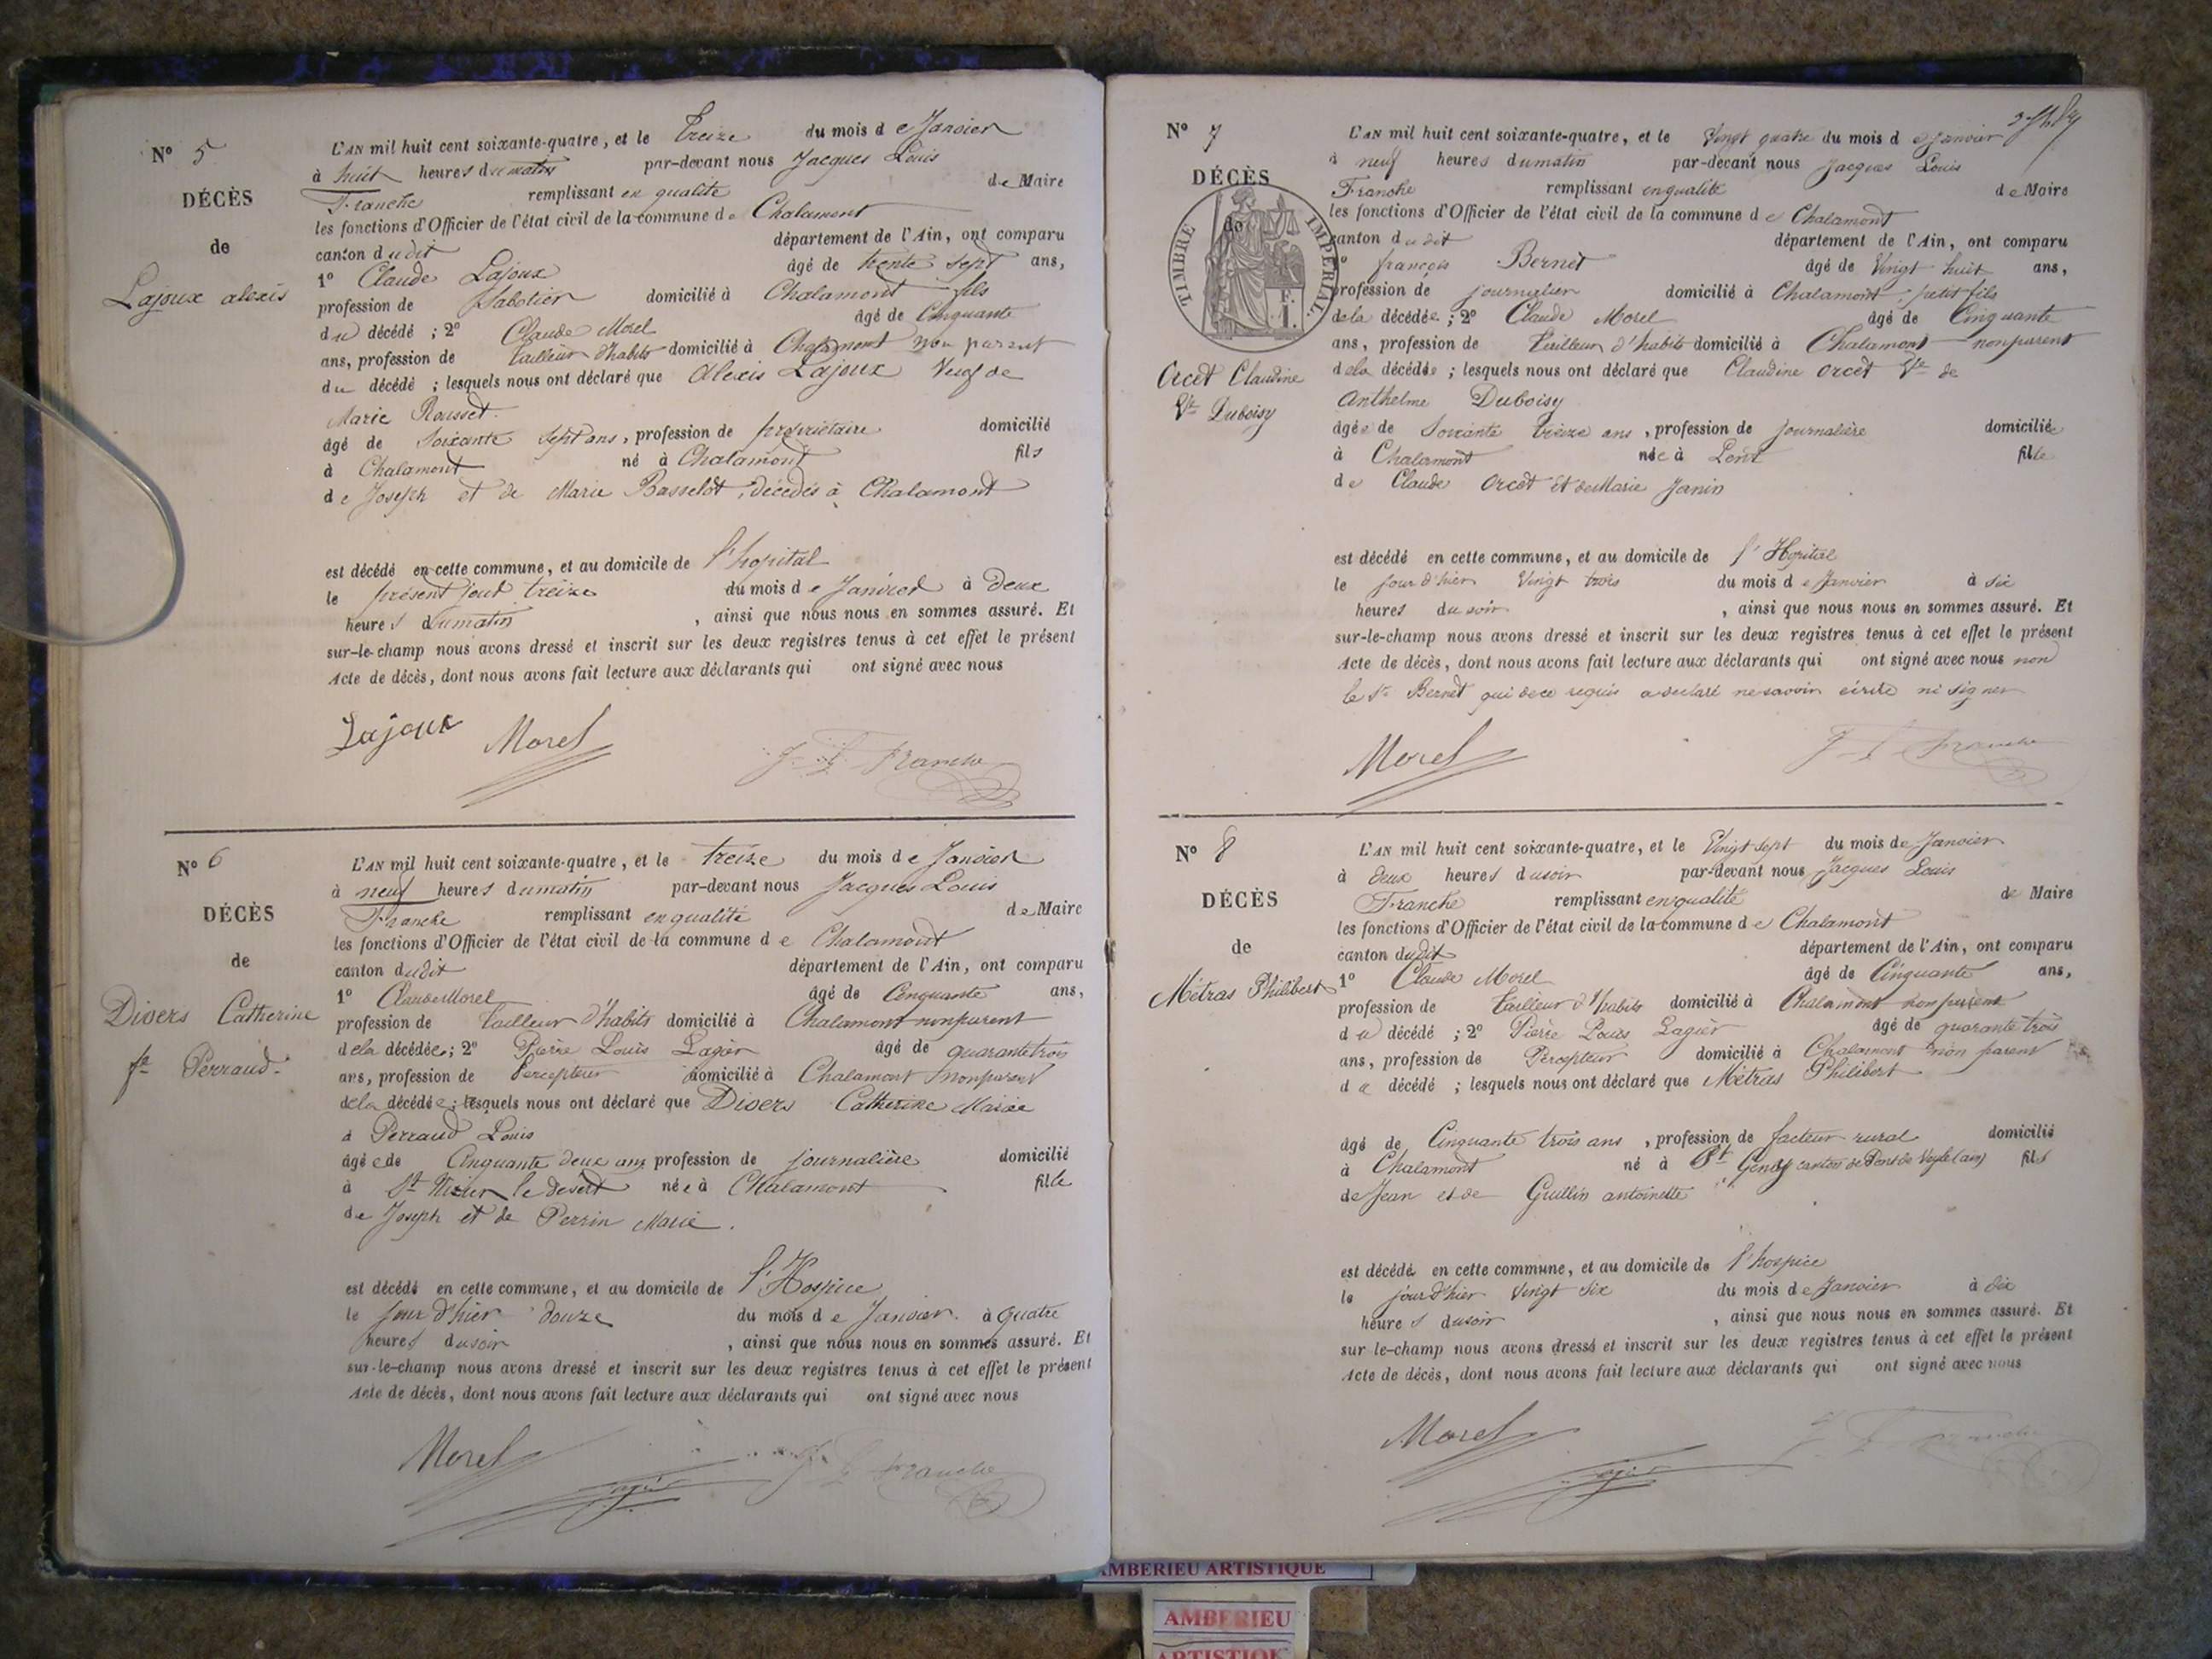 N° 5
DÉCÈS
de
Lajoux alexis
L'AN mil huit cent soixante-quatre, et le Treize du mois de Janvier
à huit heures du matin par-devant nous Jacques Louis
Franche remplissant en qualité de Maire
les fonctions d'Officier de l'état civil de la commune de Chalamont
canton dudit département de l'Ain, ont comparu
1° Claude Lajoux âgé de trente sept ans,
profession de Sabotier domicilié à Chalamont fils
du décédé ; 2° Claude Morel âgé de Cinquante
ans, profession de tailleur d'habits domicilié à Chalamont non parent
du décédé ; lesquels nous ont déclaré que Alexis Lajoux Veuf de
Marie Rousset
âgé de soixante sept ans, profession de propriétaire domicilié
à Chalamont né à Chalamont fils
de Joseph et de Marie Basselot, décédés à Chalamont
est décédé en cette commune, et au domicile de l'hopital
le présent jour treize du mois de Janvier à Deux
heures du matin, ainsi que nous nous en sommes assuré. Et
sur-le-champ nous avons dressé et inscrit sur les deux registres tenus à cet effet le présent
Acte de décès, dont nous avons fait lecture aux déclarants qui ont signé avec nous
Lajoux Morel J L Franche
N° 6
DÉCÈS
de
Divers Catherine
fe Perraud
L'AN mil huit cent soixante-quatre, et le treize du mois de Janvier
à neuf heures du matin par-devant nous Jacques Louis
Franche remplissant en qualité de Maire
les fonctions d'Officier de l'état civil de la commune de Chalamont
canton dudit département de l'Ain, ont comparu
1° Claude Morel âgé de Cinquante ans,
profession de tailleur d'habits domicilié à Chalamont non parent
de la décédée ; 2° Pierre Louis Lagier âgé de quarante trois
ans, profession de Percepteur domicilié à Chalamont non parent
de la décédée ; lesquels nous ont déclaré que Divers Catherine Mariée
à Perraud Louis
âgée de Cinquante deux ans profession de journalière domicilié
à St Nizier le desert née à Chalamont fille
de Joseph et de Perrin Marie.
est décédé en cette commune, et au domicile de l'Hospice
le jour d'hier douze du mois de Janvier à quatre
heures du soir, ainsi que nous nous en sommes assuré. Et
sur-le-champ nous avons dressé et inscrit sur les deux registres tenus à cet effet le présent
Acte de décès, dont nous avons fait lecture aux déclarants qui ont signé avec nous
Morel Lagier J L Franche
N° 7
DÉCÈS
de
TIMBRE IMPÉRIAL
Orcet Claudine
Ve Duboisy
L'AN mil huit cent soixante-quatre, et le Vingt quatre du mois de Janvier
à neuf heures du matin par-devant nous Jacques Louis
Franche remplissant en qualité de Maire
les fonctions d'Officier de l'état civil de la commune de Chalamont
canton dudit département de l'Ain, ont comparu
1° françois Bernet âgé de Vingt huit ans,
profession de journalier domicilié à Chalamont, petit fils
de la décédée ; 2° Claude Morel âgé de Cinquante
ans, profession de tailleur d'habits domicilié à Chalamont non parent
de la décédée ; lesquels nous ont déclaré que Claudine Orcet Ve de
Anthelme Duboisy
âgée de Soixante treize ans, profession de journalière domiciliée
à Chalamont née à Lent fille
de Claude Orcet et de Marie Janin
est décédé en cette commune, et au domicile de l'Hopital
le jour d'hier Vingt trois du mois de Janvier à Six
heures du soir, ainsi que nous nous en sommes assuré. Et
sur-le-champ nous avons dressé et inscrit sur les deux registres tenus à cet effet le présent
Acte de décès, dont nous avons fait lecture aux déclarants qui ont signé avec nous non
le Sr Bernet qui de ce requis a déclaré ne savoir écrire ni signer
Morel J L Franche
N° 8
DÉCÈS
de
Métras Philibert
L'AN mil huit cent soixante-quatre, et le Vingt sept du mois de Janvier
à deux heures du soir par-devant nous Jacques Louis
Franche remplissant en qualité de Maire
les fonctions d'Officier de l'état civil de la commune de Chalamont
canton dudit département de l'Ain, ont comparu
1° Claude Morel âgé de Cinquante ans,
profession de tailleur d'habits domicilié à Chalamont non parent
du décédé ; 2° Pierre Louis Lagier âgé de quarante trois
ans, profession de Percepteur domicilié à Chalamont non parent
du décédé ; lesquels nous ont déclaré que Métras Philibert
âgé de Cinquante trois ans, profession de facteur rural domicilié
à Chalamont né à St Genis canton de Pont de Veyle (ain) fils
de Jean et de Guillin antoinette
est décédé en cette commune, et au domicile de l'hospice
le jour d'hier Vingt Six du mois de Janvier à dix
heures du soir, ainsi que nous nous en sommes assuré. Et
sur-le-champ nous avons dressé et inscrit sur les deux registres tenus à cet effet le présent
Acte de décès, dont nous avons fait lecture aux déclarants qui ont signé avec nous
Morel Lagier J L Franche
AMBERIEU ARTISTIQUE
AMBERIEU
ARTISTIQUE